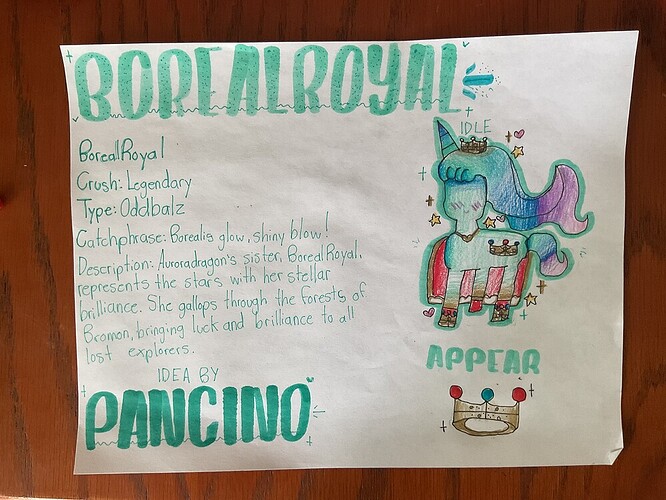 BOREALROYAL
IDLE
BorealRoyal
Crush: Legendary
Type: Oddbalz
Catchphrase: Borealis glow, shiny blow!
Description: Auroradragon's sister, BorealRoyal,
represents the stars with her stellar
brilliance. She gallops through the forests of
Bromon, bringing luck and brilliance to all
lost explorers.
IDEA BY
PANCINO
APPEAR